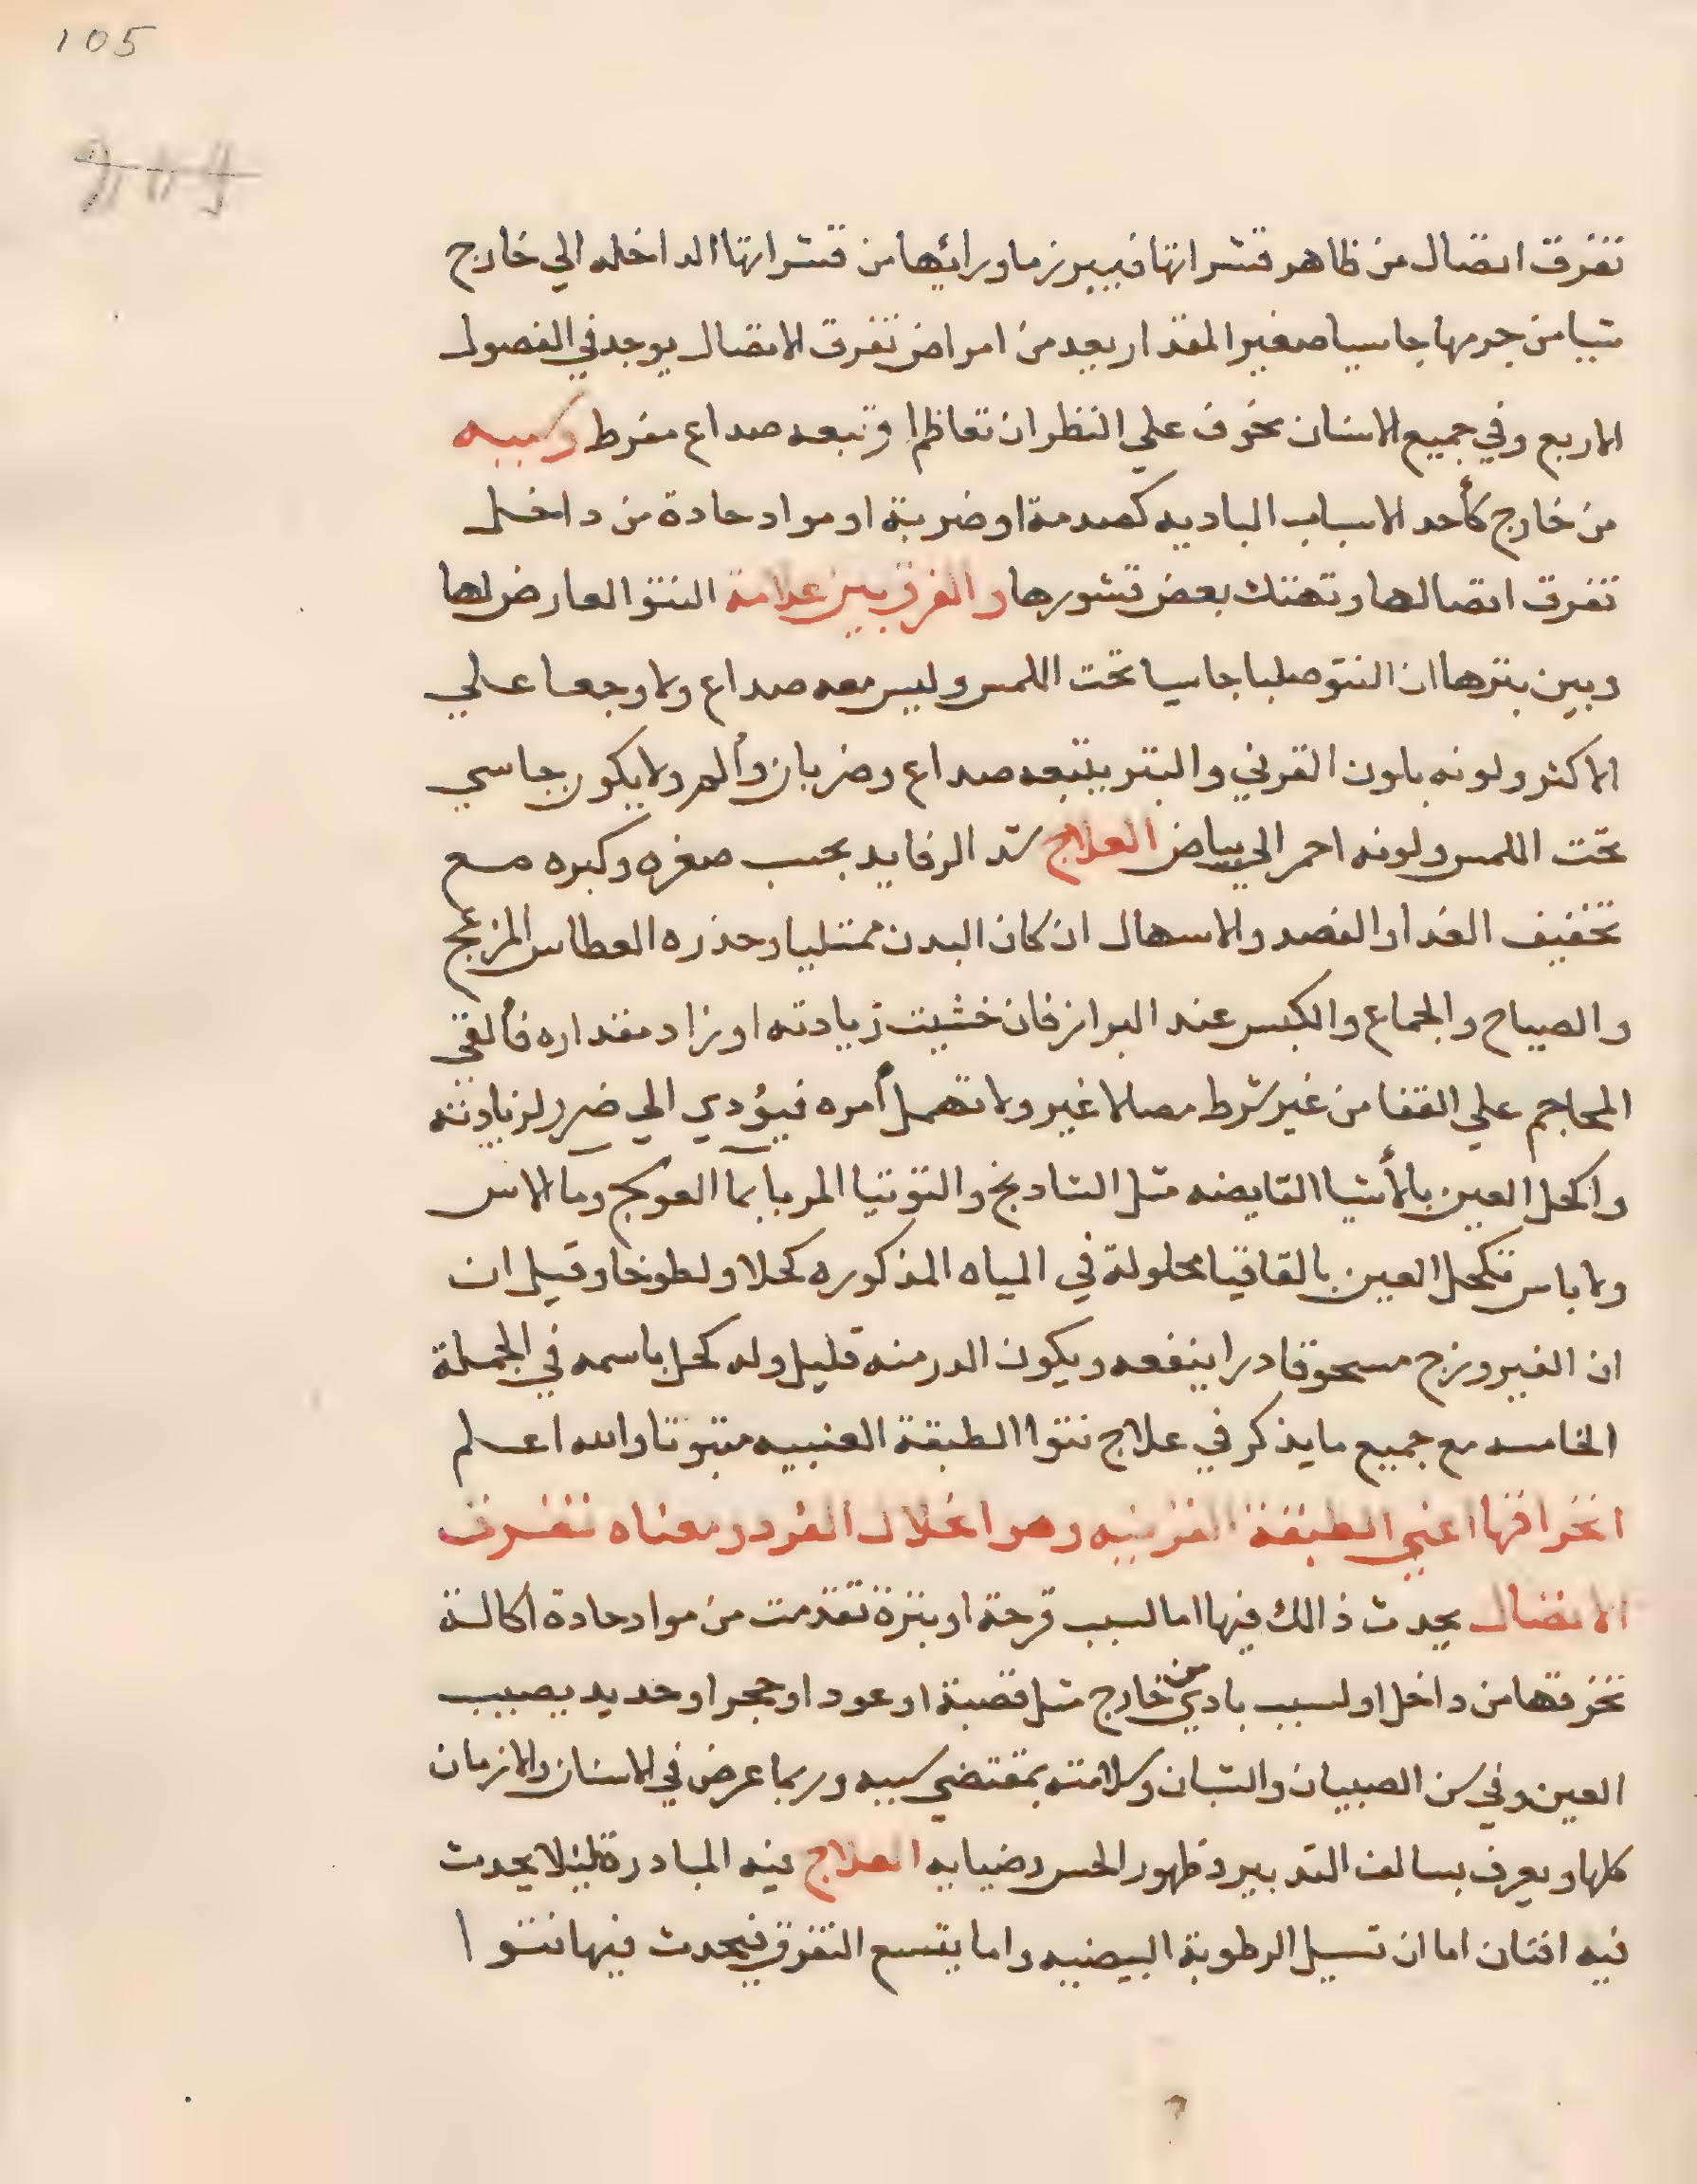 105
تفرق اتصال من ظاهر قشراتها فيبرز ماورائها من قشراتها الداخله الي خارج
شيا من جرمها جاسيا صغير المقدار يعد من امراض تفرق الاتصال يوجد في الفصول
الاربع وفي جميع الاسنان مخوف علي النظر ان تعاظم او تبعه صداع مفرط وسببه
من خارج كأحد الاسباب الباديه كصدمة او ضربة او مواد حادة من داخل
تفرق اتصالها وتهتك بعض قشورها والفرق بين علامة النتو العارض لها
وبين بثرها ان النتو صلبا جاسيا تحت اللمس وليس معه صداع ولا وجعا علي
الاكثر ولونه بلون القرني والبثر يتبعه صداع وضربان وألم ولا يكون جاسي
تحت اللمس ولونه احمر الي بياض العلاج شد الرفايد بحسب صغره وكبره مع
تخفيف الغدا والفصد والاسهال ان كان البدن ممتليا وحذره العطاس المزعج
والصياح والجماع والكبس عند البراز فان خشيت زيادته او زاد مقداره فألقي
المحاجم علي القفا من غير شرط مصا لا غير ولا تهمل أمره فيؤدي الي ضرر لزيادته
واكحل العين بالأشيا القابضه مثل الشادنج والتوتيا المربا بما العوسج وما الاس
ولا باس تكحل العين بالقاقيا محلولة في المياه المذكوره كحلا ولطوخا وقيل ان
ان الفيروزج مسحوقا درا ينفعه ويكون الدر منه قليل وله كحل باسمه في الجملة
الخامسه مع جميع ما يذكر في علاج نتوا الطبقة العنبيه مثبوتا والله اعلم
انخراقها اعني الطبقة القرنيه وهو انحلال الفرد ومعناه تفرق
الاتصال يحدث ذالك فيها اما لسبب قرحة او بثرة تقدمت من مواد حادة اكالة
تخرقها من داخل او لسبب بادي من خارج مثل قصبة او عود او حجر او حديد يصيب
العين وفي سن الصبيان والشبان وعلامته بمقتضي سببه وربما عرض في الاسنان والازمان
كلها ويعرف بسالف التدبير وظهور الحس وضيابه العلاج فيه المبادرة ليلا يحدث
فيه افتان اما ان تسيل الرطوبة البيضيه واما يتسع التفرق فيحدث فيها نتوا